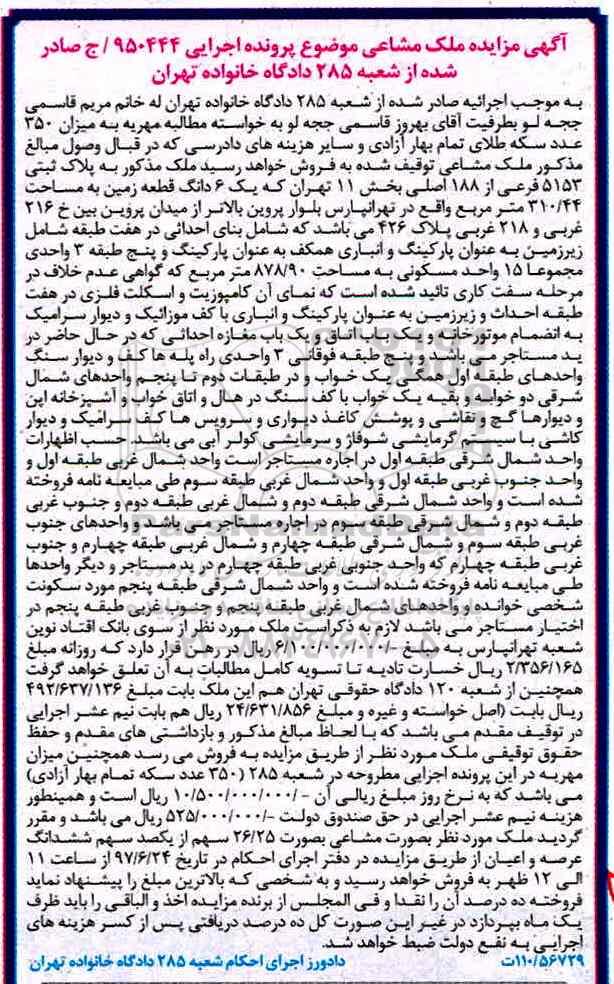 آگهی مزایده ملک مشاعی موضوع پرونده اجرایی ۹۵۰۴۴۴ / ج صادر
شده از شعبه ۲۸۵ دادگاه خانواده تهران
به موجب اجرائیه صادر شده از شعبه ۲۸۵ دادگاه خانواده تهران له خانم مریم قاسمی
ججه لو بطرفیت آقای بهروز قاسمی ججه لو به خواسته مطالبه مهریه به میزان ۳۵۰
عدد سکه طلای تمام بهار آزادی و سایر هزینه های دادرسی که در قبال وصول مبالغ
مذکور ملک مشاعی توقیف شده به فروش خواهد رسید ملک مذکور به پلاک ثبتی
۵۱۵۳ فرعی از ۱۸۸ اصلی بخش ۱۱ تهران که یک ۶ دانگ قطعه زمین به مساحت
۳۱۰/۴۴ متر مربع واقع در تهرانپارس بلوار پروین بالاتر از میدان پروین بین خ ۲۱۶
غربی و ۲۱۸ غربی پلاک ۴۲۶ می باشد که شامل بنای احداثی در هفت طبقه شامل
زیرزمین به عنوان پارکینگ و انباری همکف به عنوان پارکینگ و پنج طبقه ۳ واحدی
مجموعا ۱۵ واحد مسکونی به مساحت ۸۷۸/۹۰ متر مربع که گواهی عدم خلاف در
مرحله سفت کاری تائید شده است که نمای آن کامپوزیت و اسکلت فلزی در هفت
طبقه احداث و زیرزمین به عنوان پارکینگ و انباری با کف موزائیک و دیوار سرامیک
به انضمام موتورخانه و یک باب اتاق و یک باب مغازه احداثی که در حال حاضر در
ید مستاجر می باشد و پنج طبقه فوقانی ۳ واحدی راه پله ها کف و دیوار سنگ
واحدهای طبقه اول همگی یک خواب و در طبقات دوم تا پنجم واحدهای شمال
شرقی دو خوابه و بقیه یک خواب با کف سنگ در هال و اتاق خواب و آشپزخانه اپن
و دیوارها گچ و نقاشی و پوشش کاغذ دیواری و سرویس ها کف سرامیک و دیوار
کاشی با سیستم گرمایشی شوفاژ و سرمایشی کولر آبی می باشد. حسب اظهارات
واحد شمال شرقی طبقه اول در اجاره مستاجر است واحد شمال غربی طبقه اول و
واحد جنوب غربی طبقه اول و واحد شمال غربی طبقه سوم طی مبایعه نامه فروخته
شده است و واحد شمال شرقی طبقه دوم و شمال غربی طبقه دوم و جنوب غربی
طبقه دوم و شمال شرقی طبقه سوم در اجاره مستاجر می باشد و واحدهای جنوب
غربی طبقه سوم و شمال شرقی طبقه چهارم و شمال غربی طبقه چهارم و جنوب
غربی طبقه چهارم که واحد جنوبی غربی طبقه چهارم در ید مستاجر و دیگر واحدها
طی مبایعه نامه فروخته شده است و واحد شمال شرقی طبقه پنجم مورد سکونت
شخصی خوانده و واحدهای شمال غربی طبقه پنجم و جنوب غربی طبقه پنجم در
اختیار مستاجر می باشد لازم به ذکر است ملک مورد نظر از سوی بانک اقتاد نوین
شعبه تهرانپارس به مبلغ -/۶/۱۰۰/۰۰۰/۰۰۰ ریال در رهن قرار دارد که روزانه مبلغ
۲/۳۵۶/۱۶۵ ریال خسارت تادیه تا تسویه کامل مطالبات به آن تعلق خواهد گرفت
همچنین از شعبه ۱۲۰ دادگاه حقوقی تهران هم این ملک بابت مبلغ ۴۹۲/۶۳۷/۱۳۶
ریال بابت (اصل خواسته و غیره و مبلغ ۲۴/۶۳۱/۸۵۶ ریال هم بابت نیم عشر اجرایی
در توقیف مقدم می باشد که با لحاظ مبالغ مذکور و بازداشتی های مقدم و حفظ
حقوق توقیفی ملک مورد نظر از طریق مزایده به فروش می رسد همچنین میزان
مهریه در این پرونده اجرایی مطروحه در شعبه ۲۸۵ (۳۵۰ عدد سکه تمام بهار آزادی)
می باشد که به نرخ روز مبلغ ریالی آن -/۱۰/۵۰۰/۰۰۰/۰۰۰ ریال است و همینطور
هزینه نیم عشر اجرایی در حق صندوق دولت -/۵۲۵/۰۰۰/۰۰۰ ریال می باشد و مقرر
گردید ملک مورد نظر بصورت مشاعی بصورت ۲۶/۲۵ سهم از یکصد سهم ششدانگ
عرصه و اعیان از طریق مزایده در دفتر اجرای احکام در تاریخ ۹۷/۶/۲۴ از ساعت ۱۱
الی ۱۲ ظهر به فروش خواهد رسید و به شخصی که بالاترین مبلغ را پیشنهاد نماید
فروخته ده درصد آن را نقدا و فی المجلس از برنده مزایده اخذ و الباقی را باید ظرف
یک ماه بپردازد در غیر این صورت کل ده درصد دریافتی پس از کسر هزینه های
اجرایی به نفع دولت ضبط خواهد شد.
۱۱۰/۵۶۷۲۹ت دادورز اجرای احکام شعبه ۲۸۵ دادگاه خانواده تهران